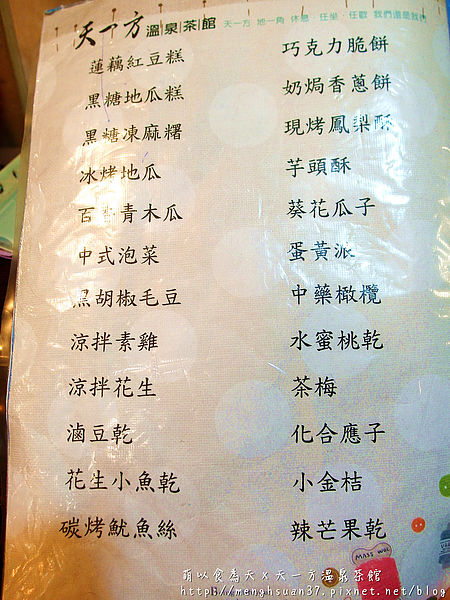 天一方 溫泉茶館 天一方 地一角 休憩．任坐．任歡 我們還是我們
蓮藕紅豆糕
黑糖地瓜糕
黑糖凍麻糬
冰烤地瓜
百香青木瓜
中式泡菜
黑胡椒毛豆
涼拌素雞
涼拌花生
滷豆乾
花生小魚乾
碳烤魷魚絲
巧克力脆餅
奶焗香蔥餅
現烤鳳梨酥
芋頭酥
葵花瓜子
蛋黃派
中藥橄欖
水蜜桃乾
茶梅
化合應子
小金桔
辣芒果乾
萌以食為天 x 天一方溫泉茶館
http://menghsuan37.pixnet.net/blog